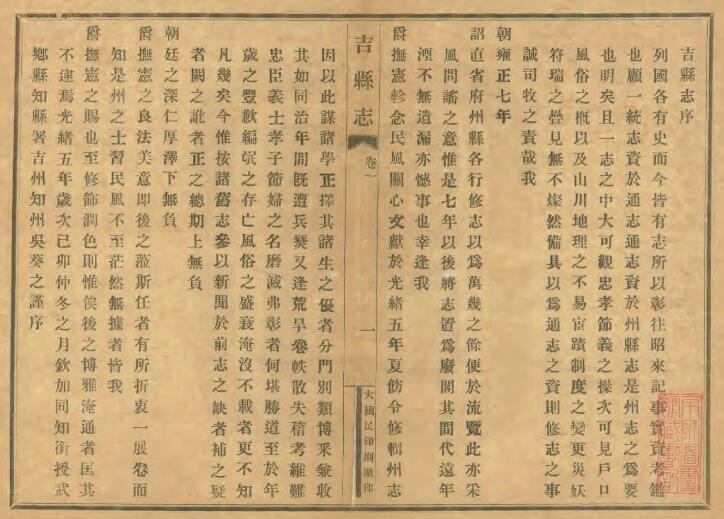 吉縣志序
列國各有史而今皆有志所以彰往昭來記事實資考鑑
也顧一統志資於通志通志資於州縣志是州志之爲要
也明矣且一志之中大可觀忠孝節義之操次可見戶口
風俗之槪以及山川地理之不易宦蹟制度之變更災妖
符瑞之疊見無不燦然備具以爲通志之資則修志之事
誠司牧之責哉我
朝雍正七年
詔直省府州縣各行修志以爲萬幾之餘便於流覽此亦采
風問謠之意惟是七年以後將志置爲廢閣其間代遠年
湮不無遺漏亦憾事也幸逢我
爵撫憲軫念民風關心文獻於光緒五年夏飭令修輯州志
吉縣志
卷一
一
大國民印刷廠印
因以此謀諸學正擇其諸生之優者分門別類博釆兼收
其如同治年間旣遭兵燹又逢荒旱卷帙散失稽考維難
忠臣義士孝子節婦之名磨滅弗彰者何堪勝道至於年
歲之豐歉編氓之存亡風俗之盛衰淹沒不載者更不知
凡幾矣今惟按諸舊志參以新聞於前志之缺者補之疑
者闕之訛者正之總期上無負
朝廷之深仁厚澤下無負
爵撫憲之良法美意卽後之蒞斯任者有所折衷一展卷而
知是州之士習民風不至茫然無據者皆我
爵撫憲之賜也至修飾潤色則惟俟後之博雅淹通者匡其
不逮焉光緒五年歲次己卯仲冬之月欽加同知銜授武
鄉縣知縣署吉州知州吳葵之謹序